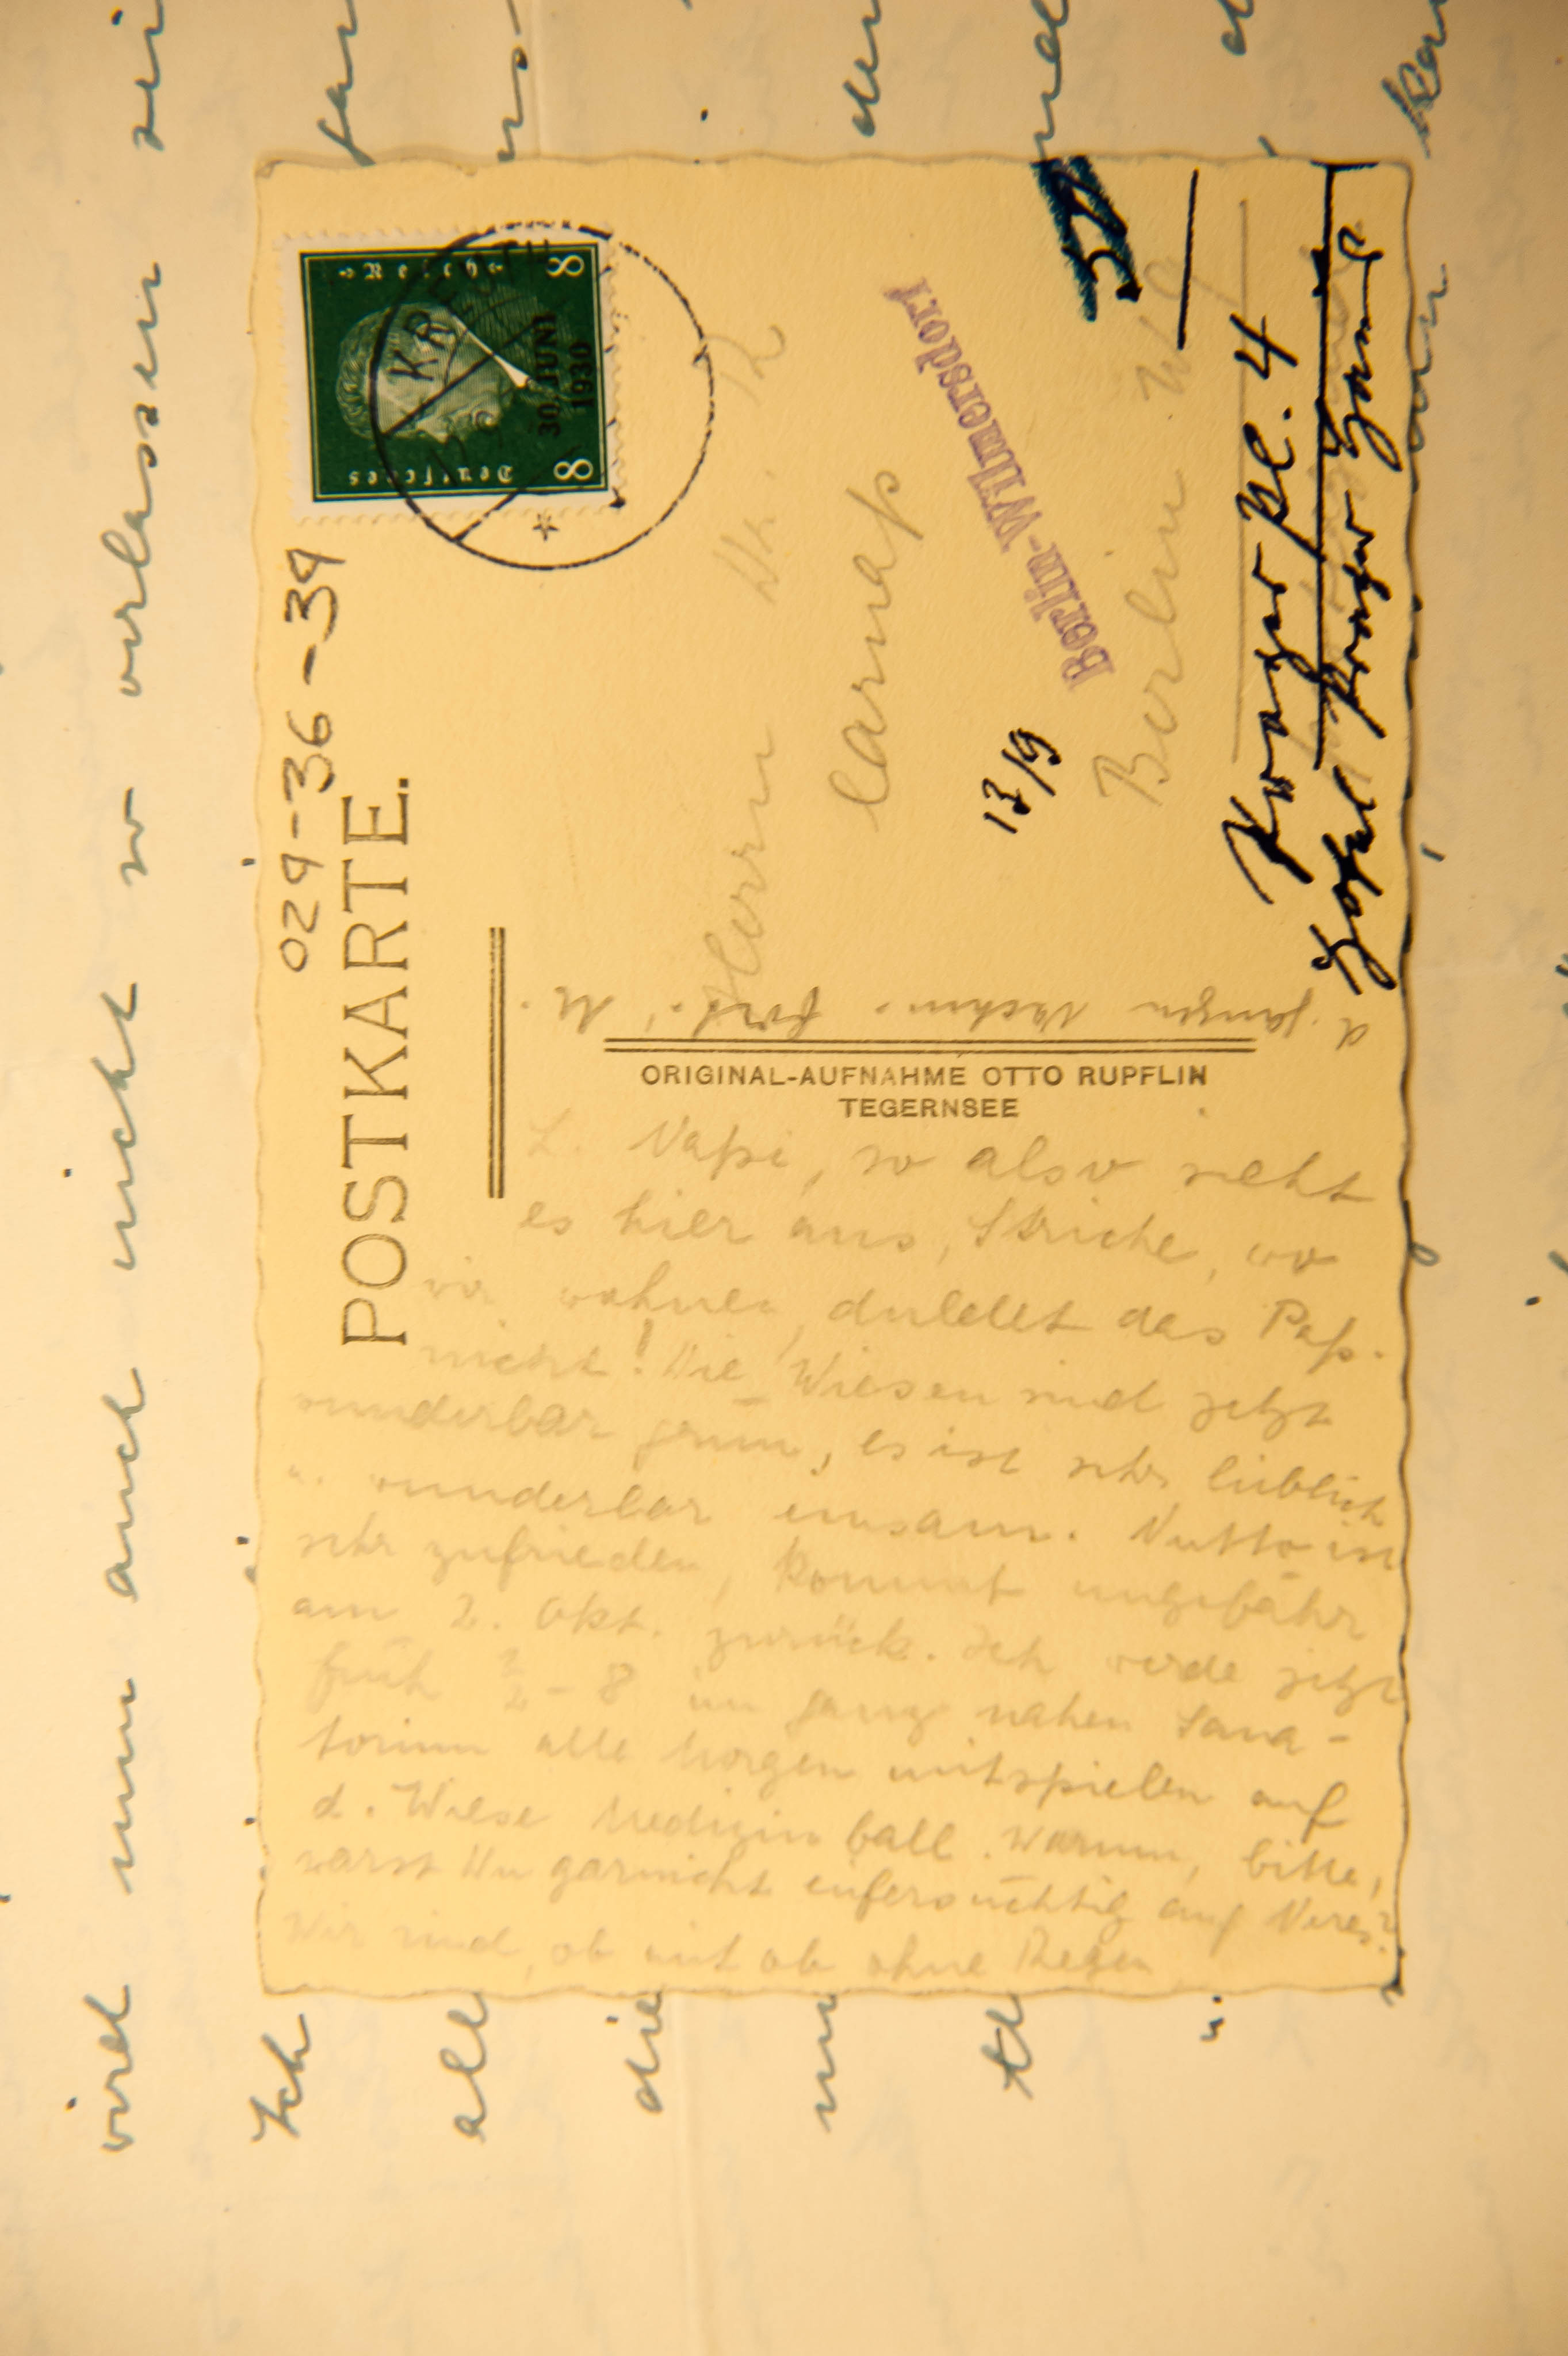 029-36-39
POSTKARTE.
Deutsches Reich
8 8
KREUTH
30. JUNI
1930
Herrn Dr. R
Carnap
Berlin-Wilmersdorf
17/9
Berlin W
Krager Pl. 4
ORIGINAL-AUFNAHME OTTO RUPFLIN
TEGERNSEE
L. Napi, so also sieht
es hier aus, Striche, wo
wir wohnen, duldet das Pap.
nicht! Die Wiesen sind jetzt
wunderbar grün, es ist sehr lieblich
u. wunderbar einsam. Nutto ist
sehr zufrieden, kommt ungefähr
am 2. Okt. zurück. Ich werde jetzt
früh - 8 im ganz nahen Sana-
torium alle Morgen mitspielen auf
d. Wiese Medizinball. Warum, bitte,
warst Du garnicht eifersüchtig auf Veres?
Wir sind, ob mit ob ohne Regen
d. ganzen Nachm. fort. M.
viel nun auch nicht so verlassen
Ich
all
die